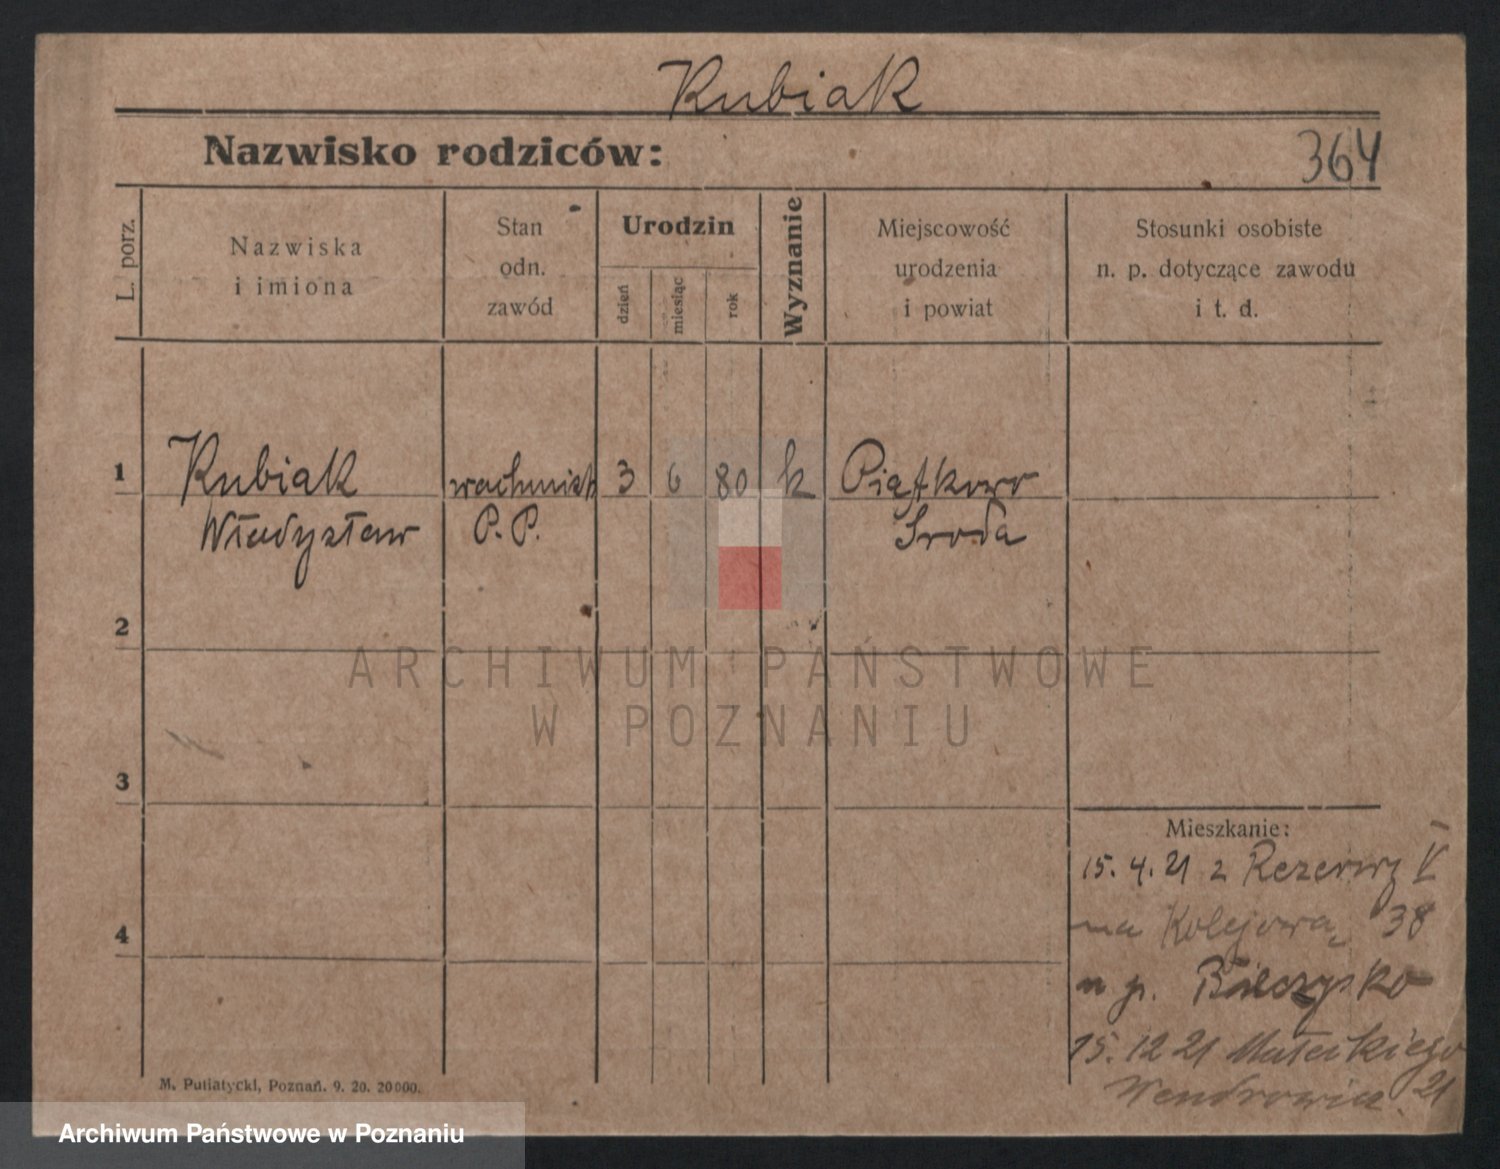 Kubiak
Nazwisko rodziców:
364
L. porz.
Nazwiska
i imiona
Stan
odn.
zawód
Urodzin
dzień
miesiąc
rok
Wyznanie
Miejscowość
urodzenia
i powiat
Stosunki osobiste
n. p. dotyczące zawodu
i t. d.
1 Kubiak wachmistrz 3 6 80 k Piątkowo
Władysław P. P. Środa
2
ARCHIWUM PAŃSTWOWE
W POZNANIU
3
Mieszkanie:
15. 4. 21 z Rezerwy V
na Kolejową 38
4
u p.
15. 12 21 Małeckiego
21
M. Putiatycki, Poznań. 9. 20. 20000.
Archiwum Państwowe w Poznaniu